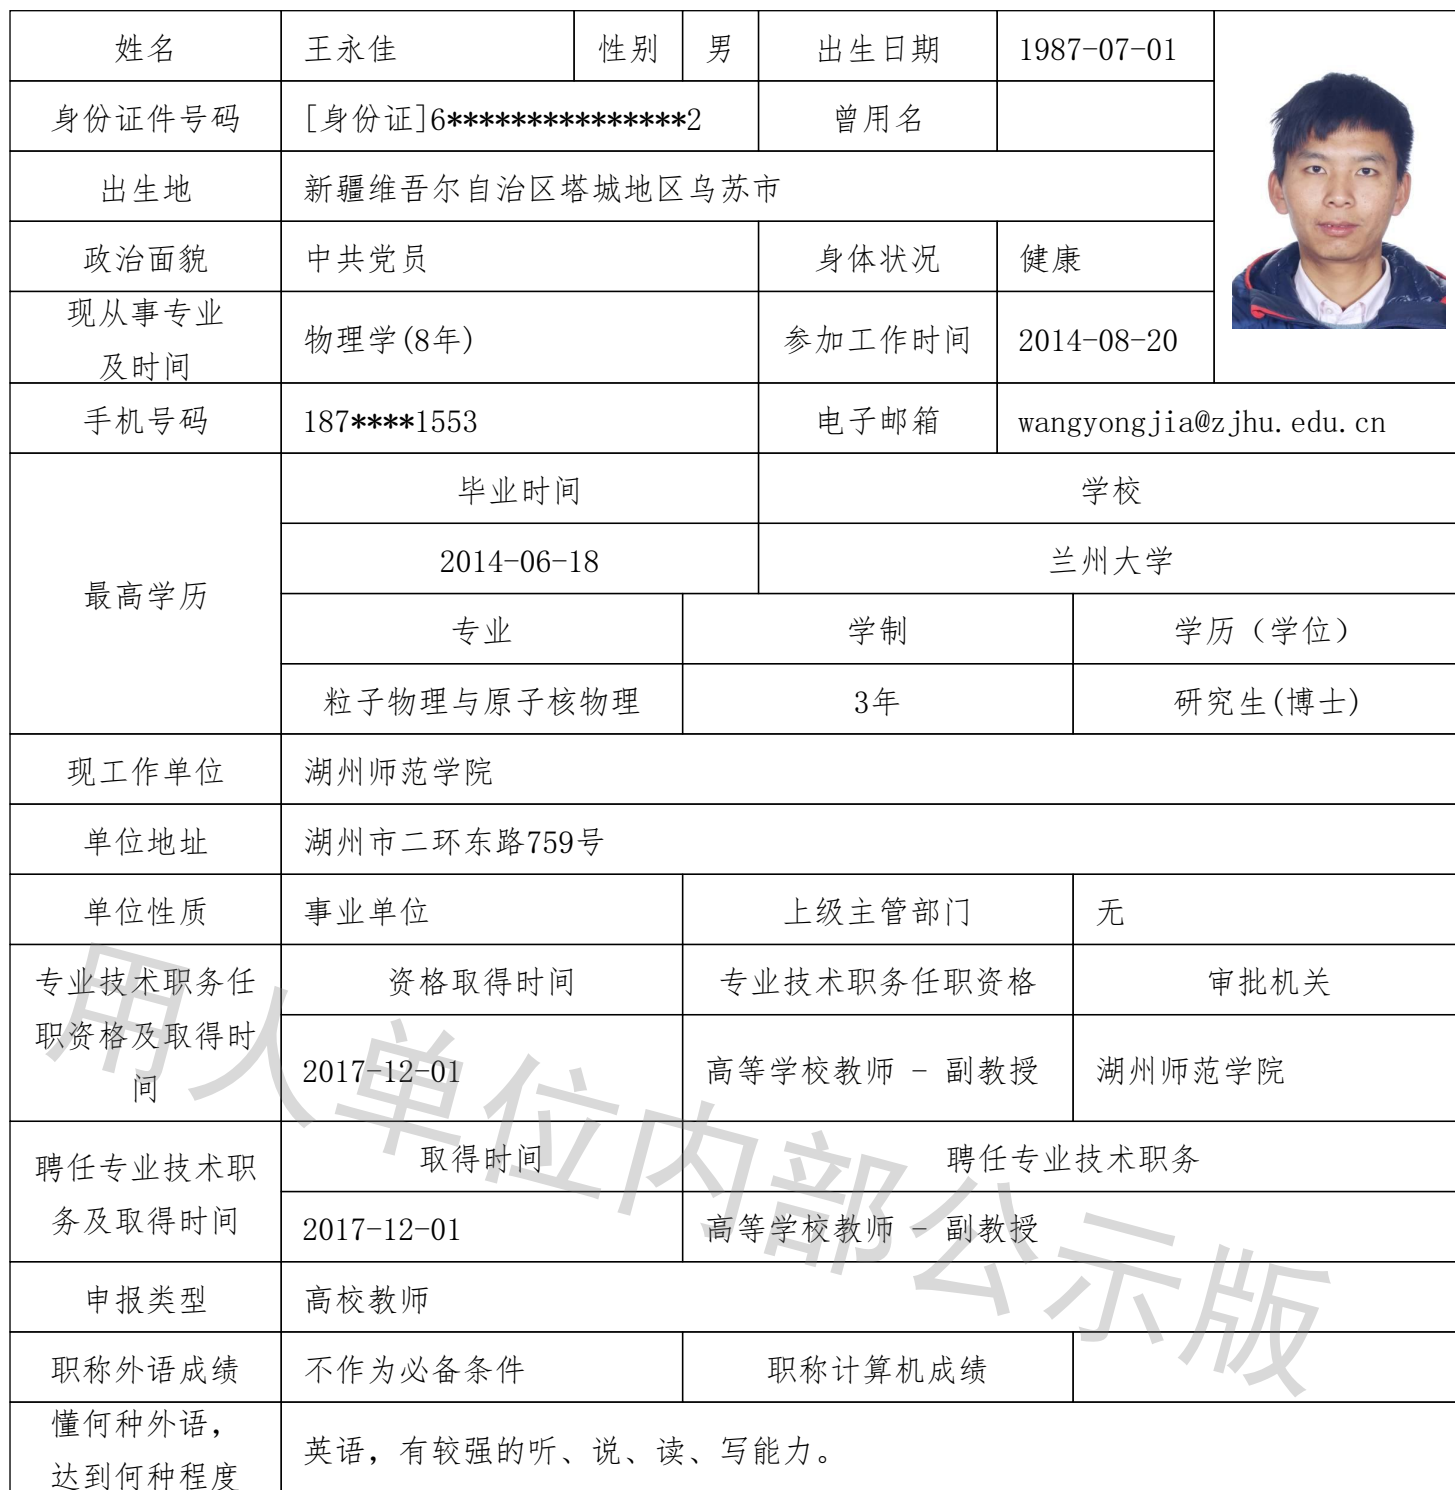 姓名 王永佳 性别 男 出生日期 1987-07-01
身份证件号码 [身份证]6***************2 曾用名
出生地 新疆维吾尔自治区塔城地区乌苏市
政治面貌 中共党员 身体状况 健康
现从事专业
及时间 物理学(8年) 参加工作时间 2014-08-20
手机号码 187****1553 电子邮箱 wangyongjia@zjhu.edu.cn
最高学历
毕业时间 学校
2014-06-18 兰州大学
专业 学制 学历（学位）
粒子物理与原子核物理 3年 研究生(博士)
现工作单位 湖州师范学院
单位地址 湖州市二环东路759号
单位性质 事业单位 上级主管部门 无
专业技术职务任
职资格及取得时
间
资格取得时间 专业技术职务任职资格 审批机关
2017-12-01 高等学校教师 - 副教授 湖州师范学院
聘任专业技术职
务及取得时间
取得时间 聘任专业技术职务
2017-12-01 高等学校教师 - 副教授
申报类型 高校教师
职称外语成绩 不作为必备条件 职称计算机成绩
懂何种外语，
达到何种程度 英语，有较强的听、说、读、写能力。
用人单位内部公示版